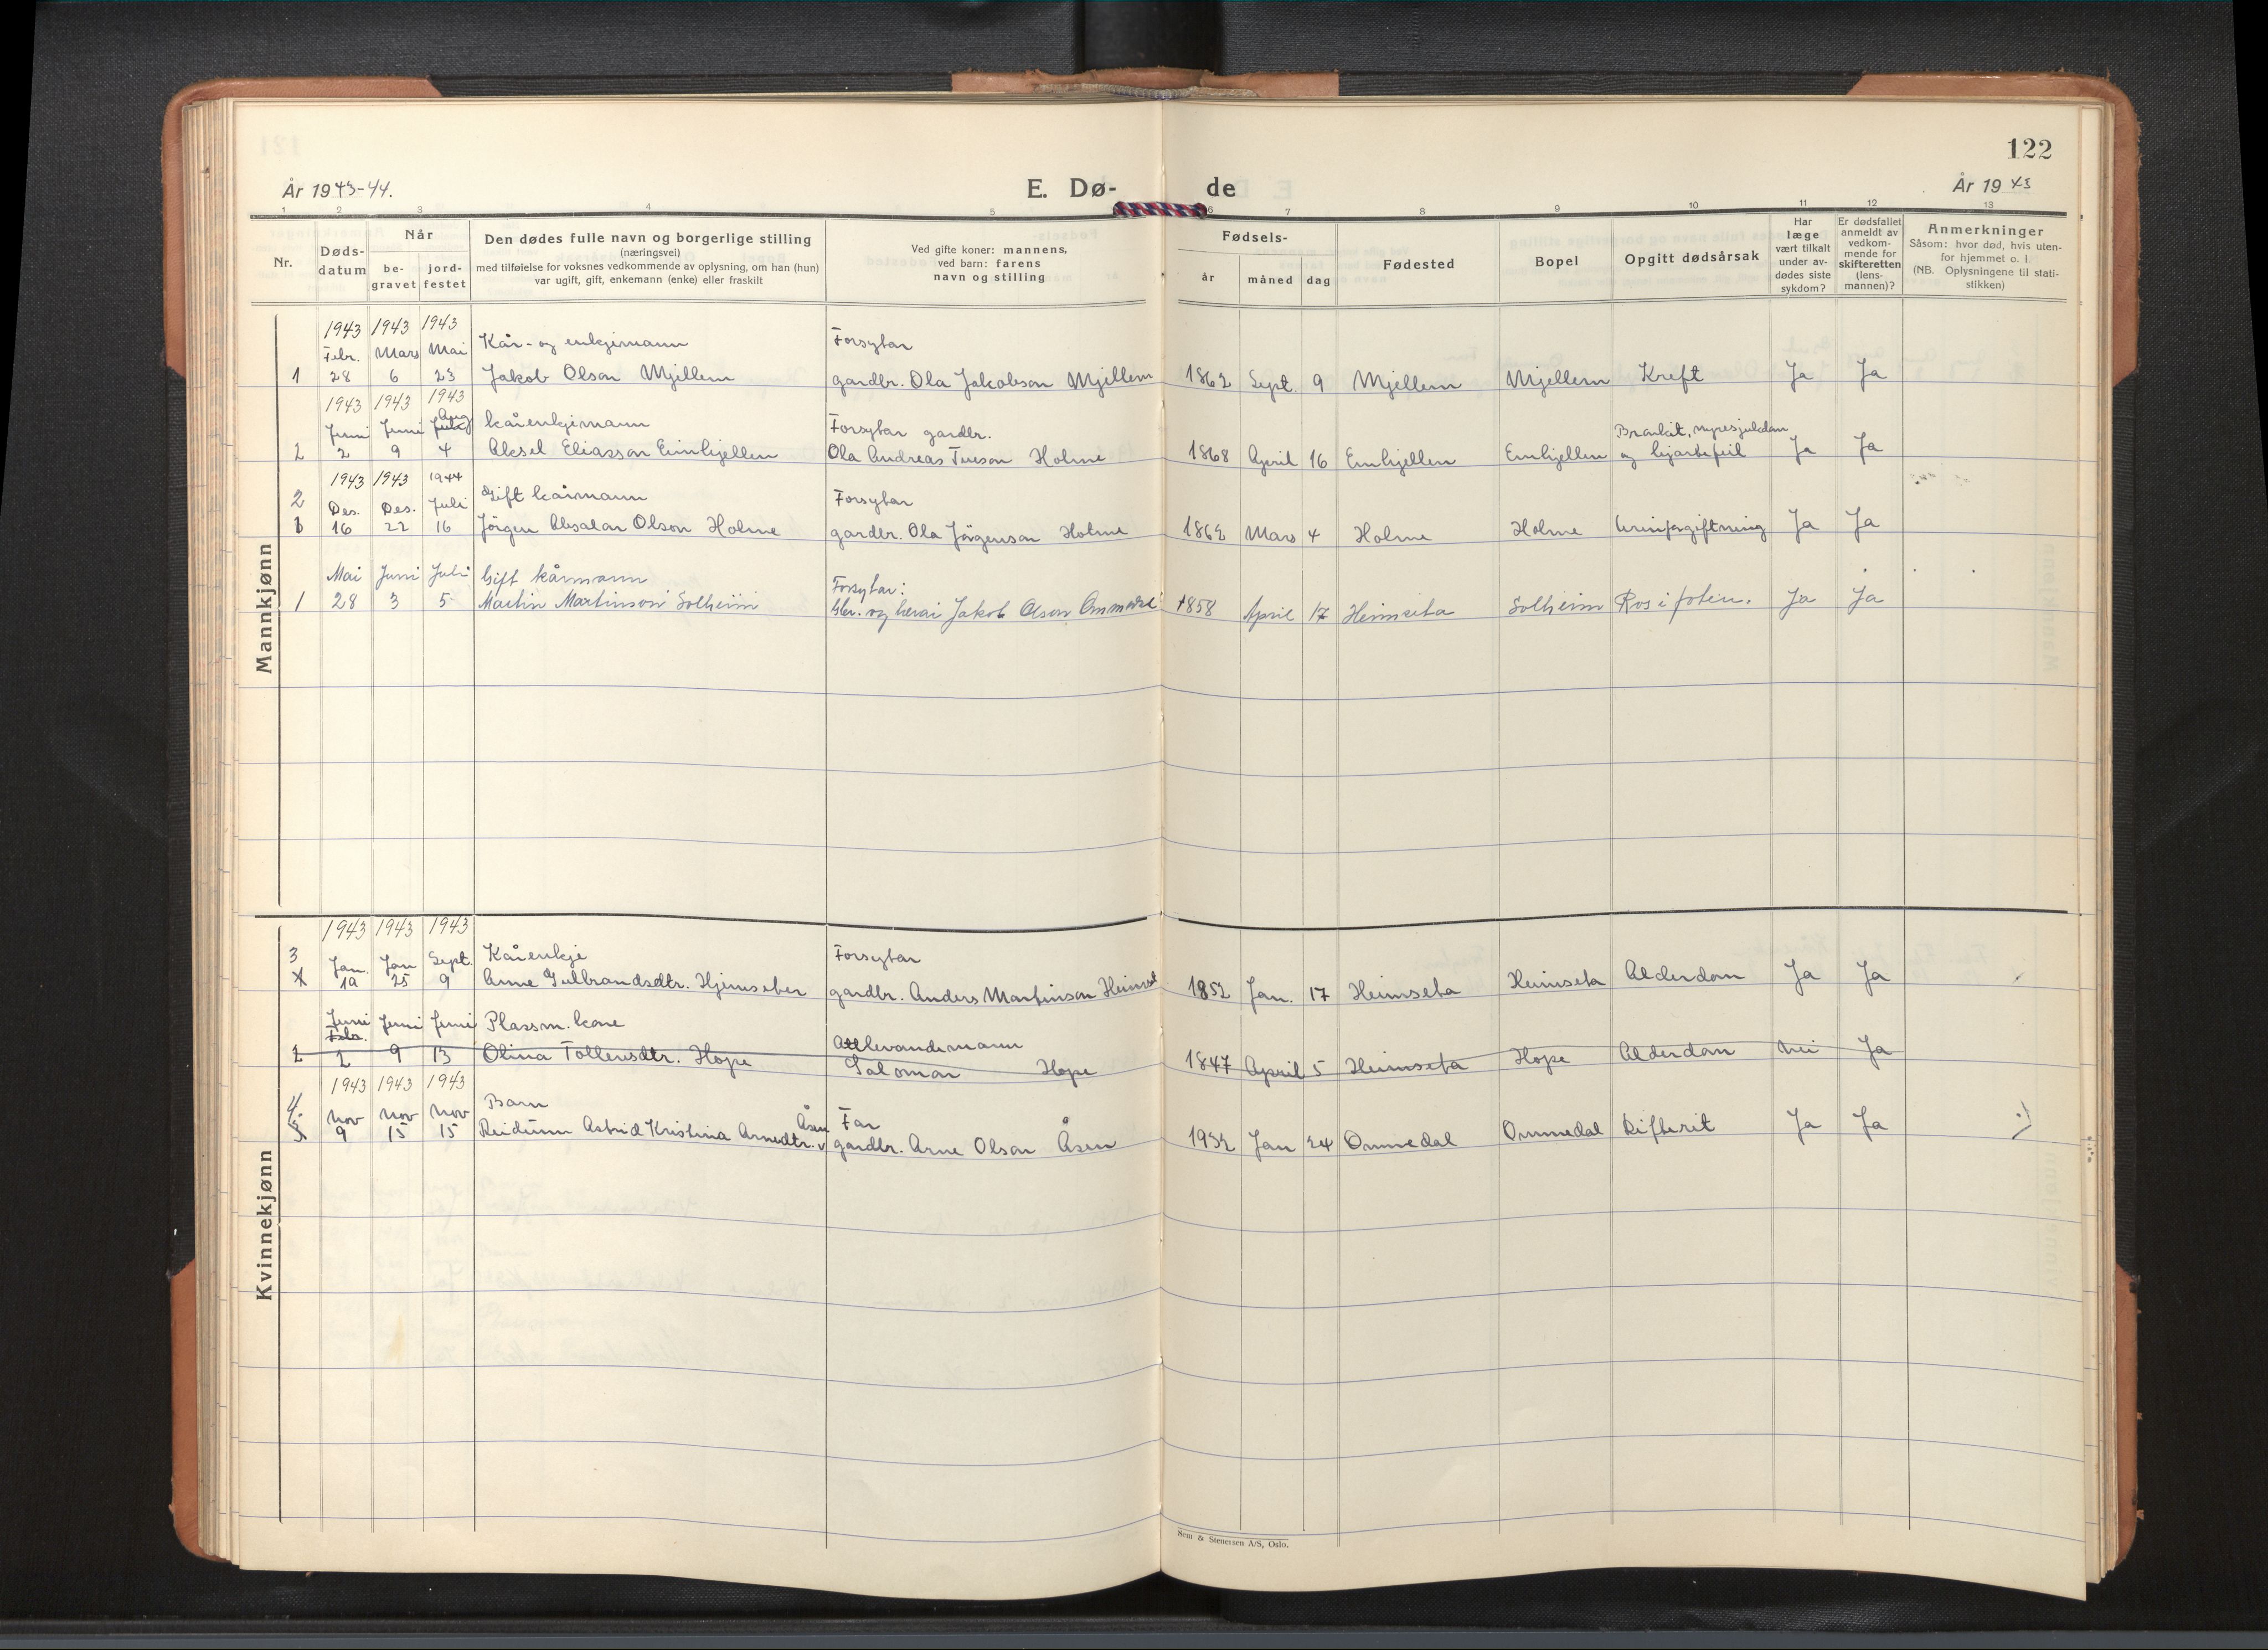 122
År 1943-44.
E. Dø-
de
År 1943
1 2 3 4 5 6 7 8 9 10 11 12 13
Nr.
Døds-
datum
Når
be-
gravet
jord-
festet
Den dødes fulle navn og borgerlige stilling
(næringsvei)
med tilføielse for voksnes vedkommende av oplysning, om han (hun)
var ugift, gift, enkemann (enke) eller fraskilt
Ved gifte koner: mannens,
ved barn: farens
navn og stilling
Fødsels-
år
måned
dag
Fødested
Bopel
Opgitt dødsårsak
Har
læge
vært tilkalt
under av-
dødes siste
sykdom?
Er dødsfallet
anmeldt av
vedkom-
mende for
skifteretten
(lens-
mannen)?
Anmerkninger
Såsom: hvor død, hvis uten-
for hjemmet o. l.
(NB. Oplysningene til stati-
stikken)
Mannkjønn
1943 1943 1943
Febr. Mars Mai Kår- og enkjemann Forsytar
1 28 6 23 Jakob Olson Mjellem gardbr. Ola Jakobson Mjellem 1862 Sept. 9 Mjellem Mjellem Kreft Ja Ja
1943 1943 1943
Aug
Juni Juni July kårenkjemann Forsytar gardbr. Bronkit, nyresjukdom
2 2 9 4 Aksel Eliasson Eimhjellen Ola Andreas Iverson Holme 1868 April 16 Eimhjellen Eimhjellen og hjartefeil Ja Ja
1943 1943 1944
2 Des. Des. Juli Gift kårmann Forsytar
1 16 22 16 Jörgen Absalon Olson Holme gardbr. Ola Jörgenson Holme 1862 Mars 4 Holme Holme Urinforgiftning Ja Ja
Mai Juni Juli Gift kårmann Forsytar:
1 28 3 5 Martin Martinson Solheim Gbr. og herai Jakob Olson Ommedal 1858 April 17 Heimseta Solheim Ros i foten. Ja Ja
Kvinnekjønn
1943 1943 1943
3 Jan. Jan Sept. Kårenkje Forsytar
19 25 9 Anne Gulbrandsdtr. Hjemseter gardbr. Anders Martinson Heimset 1852 Jan. 17 Heimseta Heimseta Alderdom Ja Ja
Juni Juni Juni Plassm. kone
Febr. Attlevandemann
2 2 9 13 Olina Tollevsdtr. Hope Salomon Hope 1847 April 5 Heimseta Hope Alderdom Nei Ja
1943 1943 1943
4. Nov Nov Nov Barn Åsen Far
9 15 15 Reidunn Astrid Kristina Arnedtr. gardbr. Arne Olson Åsen 1932 Jan 24 Ommedal Ommedal Difterit Ja Ja
Sem & Stenersen A/S, Oslo.